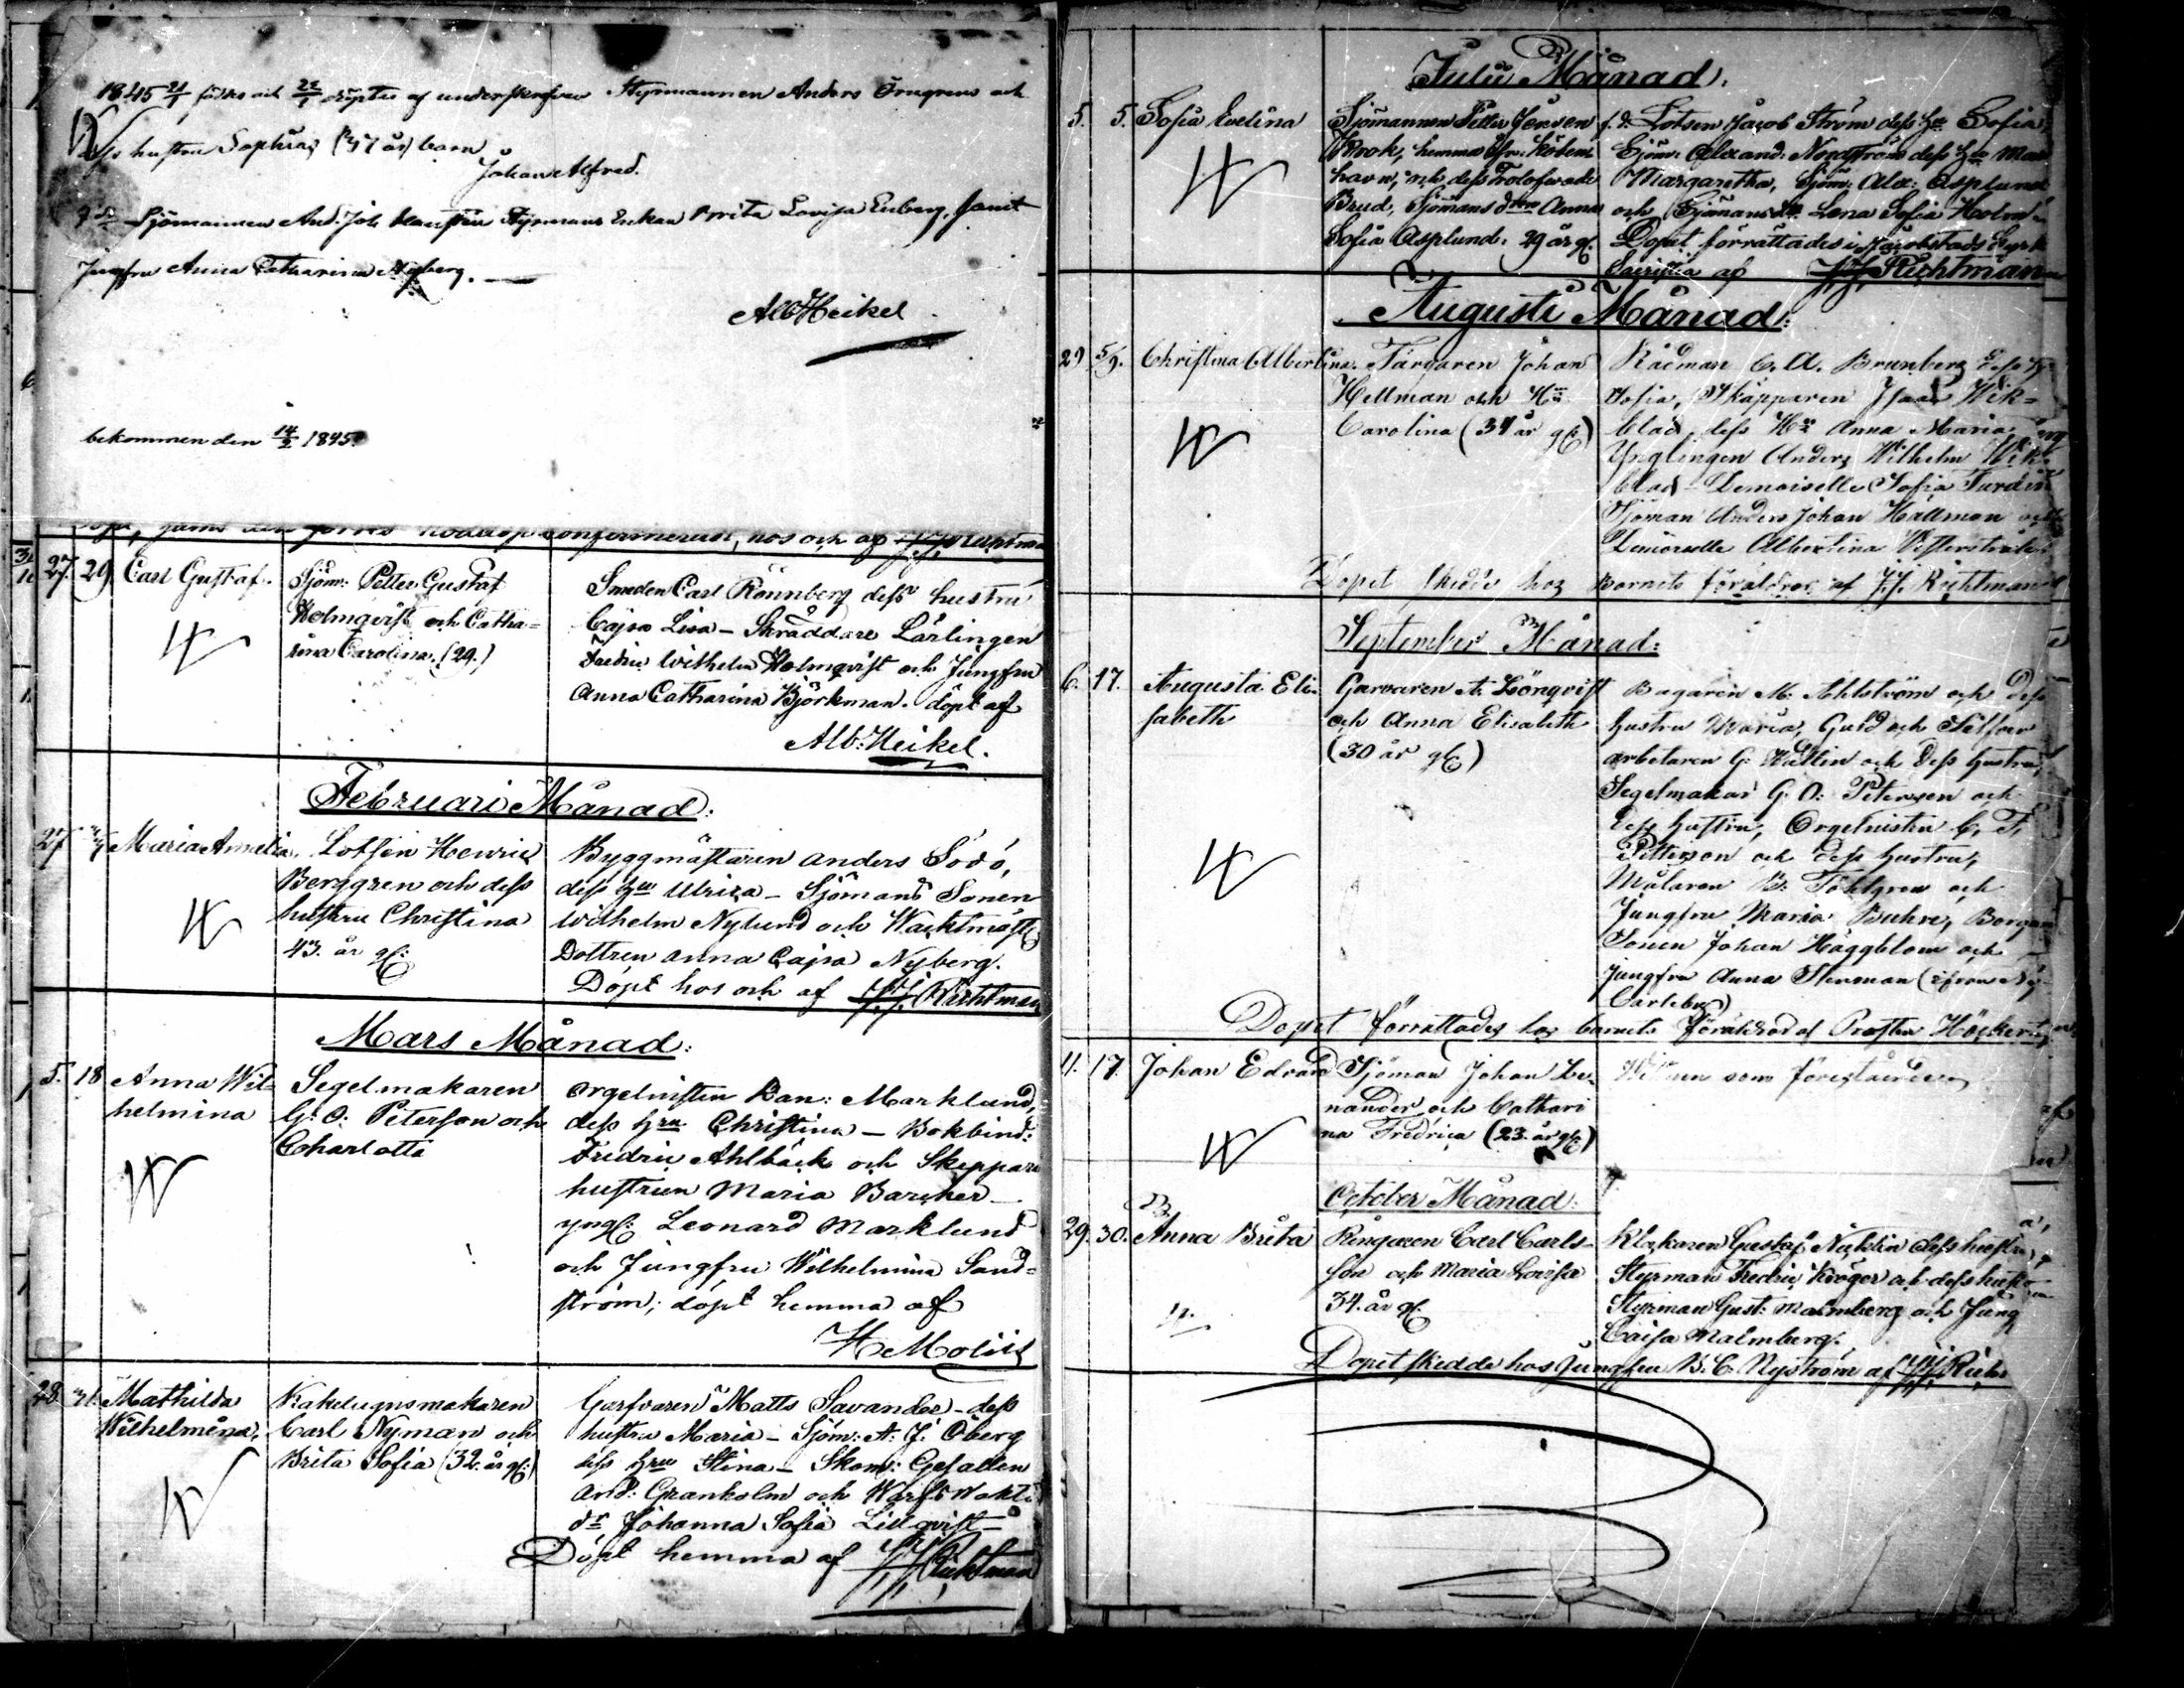 1845 21/1 föddes och 22/1 döptes af underskrefven Styrmannen Anders Örngrens och
dess hustru Sophias (37 år) barn
Johan Alfred.
Sjömannen And. Joh. Styrmans Enkan Brita Lovisa Enberg, samt
Jungfru Anna Catharina Nyberg.
Alb Heikel
bekommen den 14/2 1845.
27. 29 Carl Gustaf. Sjöm: Petter Gustaf
Holmqvist och Catha=
rina Carolina. (29.)
Smeden Carl Rönnberg dess hustru
Cajsa Lisa – Skräddare Lärlingen
Fredric Wilhelm Holmqvist och Jungfru
Anna Catharina Björkman. döpt af
Alb: Heikel.
Februari Månad:
27 Maria Amelia. Lotsen Henric
Berggren och dess
hustru Christina
43. år gl:
Byggmästaren Anders Södö,
dess hru Ulrica – Sjömans Sonen
Wilhelm Nylund och Wacktmäst
Dottren Anna Cajsa Nyberg.
Döpt hos och af J.J. Richtman
Mars Månad:
5. 18 Anna Wil=
helmina
Segelmakaren
G: O: Peterson och
Charlotta
Orgelnisten Kan: Marklund,
dess hru Christina – Bokbind:
Fredric Ahlbäck och Skeppare
hustrun Maria Barcher –
yngl: Leonard Marklund
och Jungfru Wilhelmina Sand=
ström; döpt hemma af
H Molis
28 Mathilda
Wilhelmina.
Kakelugnsmakaren
Carl Nyman och
Brita Sofia (32. år gl:)
Garfvaren Matts Savander – dess
hustru Maria – Sjöm: A: J: Öberg
dess hru Stina – Skom: Gesällen
And: Granholm och Warfs Wakt:
dr Johanna Sofia Lillqvist –
Döpt hemma af J.J. Richtman
Julii Månad.
5. 5. Sofia Evelina
Sjömannen Petter Jensen
Krok, hemma ifr: Köben=
havn, och dess Trolofwade
Brud, Sjömans dtren Anna
Sofia Asplund. 29 år gl.
f. d. Lotsen Jacob Ström dess hru Sofia,
Sjöm: Alexand: Nordström dess hru
Margaretha, Sjöm: Alex: Asplund
och Sjömans dr. Lena Sofia Holm
Dopet förrättades i Jacobstads Kyrk
Sacristia af J.J. Richtman
Augusti Månad:
29 5/9. Christina Albertina.
Färgaren Johan
Hellman och Hu
Carolina (34 år gl:)
Rådman C. A. Brunberg dess H
Sofia, Skäpparen Isaac Wik=
blad, dess Hu Anna Maria
Ynglingen Anders Wilhelm Wik=
blad – Demoiselle Sofia Turdin
Sjöman Anders Johan Hällman och
Demoiselle Albertina Westerstråle
Dopet skedde hos Barnets föräldrar af J.J. Richtman
September Månad:
6. 17. Augusta Eli=
sabeth
Garvaren A. Lönqvist
och Anna Elisabeth
(30 år gl:)
Bagaren M. Ahlström och Dess
hustru Maria, Guld och Silfver
arbetaren G. Wallin och Dess hustru,
Segelmakar G. O. Peterson och
dess hustru, Orgelnisten C. F.
Petterson och dess hustru,
Målaren B: Tohlgren och
Jungfru Maria Buhre, Borgare
Sonen Johan Häggblom och
Jungfru Anna Stenman (ifrån Ny
Carleby)
Dopet förrättades hos barnets föräldrar af Prosten Höckert
11. 17. Johan Edvard
Sjöman Johan Le=
nander och Cathari
na Fredrica (23. år gl:)
Wittnen som förestående
October Månad:
29. 30. Anna Brita
Ringaren Carl Carls=
son och Maria Lovisa
34. år gl:
Klockaren Gustaf Nicklin dess hustru,
Styrman Fredric Kröger och dess hustru
Styrman Gust: Malmberg och Jung
Caisa Malmberg.
Dopet skedde hos Jungfru B. C. Nyström af J.J. Rich